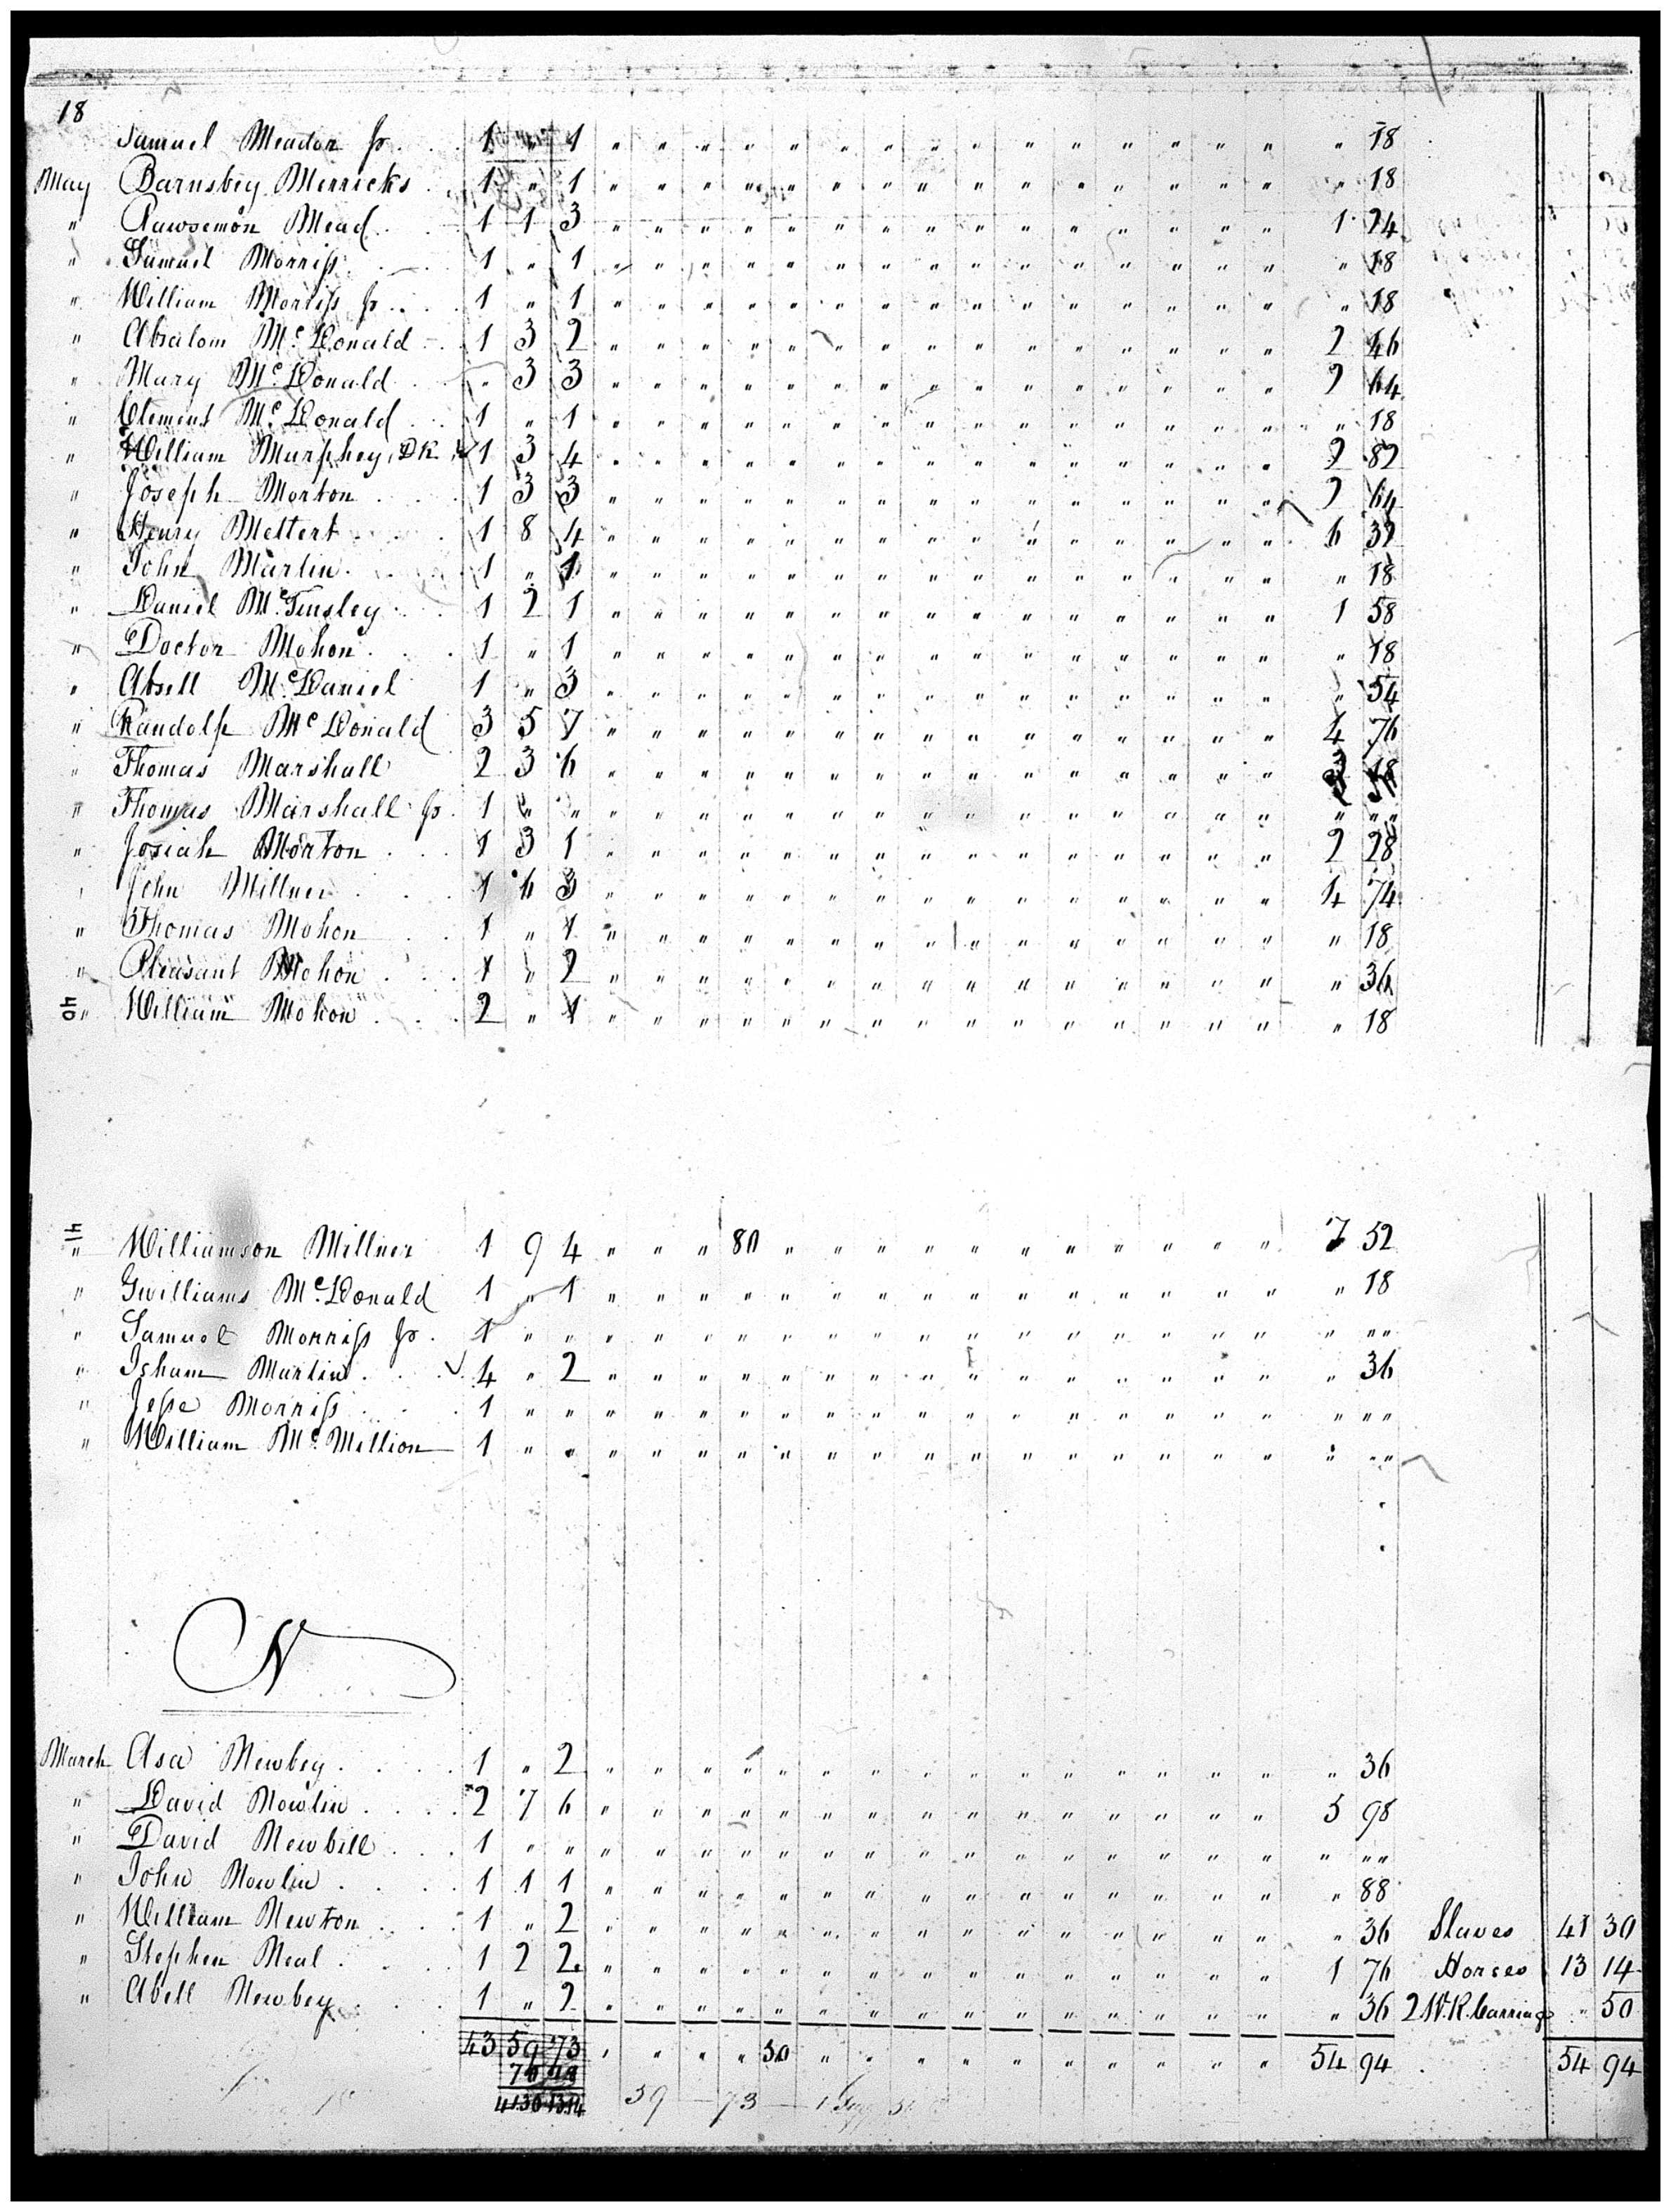 18
Samuel Meador Jr. 1 " 1 " " " " " " " " " " " " " " " " 18
May Barnsbey Merricks 1 " 1 " " " " " " " " " " " " " " " " 18
" Rawsemon Mead 1 1 3 " " " " " " " " " " " " " " " 1 24
" Samuel Morriss 1 " 1 " " " " " " " " " " " " " " " " 18
" William Morriss Jr. 1 " 1 " " " " " " " " " " " " " " " " 18
" Absalom Mc. Donald 1 3 2 " " " " " " " " " " " " " " " 2 46
" Mary Mc. Donald " 3 3 " " " " " " " " " " " " " " " 2 64
" Clement Mc. Donald 1 " 1 " " " " " " " " " " " " " " " " 18
" William Murphey, DR 1 3 4 " " " " " " " " " " " " " " " 2 82
" Joseph Morton 1 3 3 " " " " " " " " " " " " " " " 2 64
" Henry Mettert 1 8 4 " " " " " " " " " " " " " " " 6 32
" John Martin 1 " 1 " " " " " " " " " " " " " " " " 18
" Daniel Mc. Tinsley 1 2 1 " " " " " " " " " " " " " " " 1 58
" Doctor Mohon 1 " 1 " " " " " " " " " " " " " " " " 18
" Absell Mc. Daniel 1 " 3 " " " " " " " " " " " " " " " " 54
" Randolp Mc Donald 3 5 7 " " " " " " " " " " " " " " " 4 76
" Thomas Marshall 2 3 6 " " " " " " " " " " " " " " " 3 18
" Thomas Marshall Jr. 1 " " " " " " " " " " " " " " " " " " " "
" Josiah Morton 1 3 1 " " " " " " " " " " " " " " " 2 28
" John Millner 1 6 3 " " " " " " " " " " " " " " " 4 74
" Thomas Mohon 1 " 1 " " " " " " " " " " " " " " " " 18
" Pleasant Mohon 1 " 2 " " " " " " " " " " " " " " " " 36
40 " William Mohon 2 " 1 " " " " " " " " " " " " " " " " 18
41 " Williamson Millner 1 9 4 " " " 80 " " " " " " " " " " " 7 52
" Gwilliams Mc. Donald 1 " 1 " " " " " " " " " " " " " " " " 18
" Samuel Morriss Jr. 1 " " " " " " " " " " " " " " " " " " " "
" Isham Martin 4 " 2 " " " " " " " " " " " " " " " " 36
" Jesse Morriss 1 " " " " " " " " " " " " " " " " " " " "
" William Mc. Million 1 " " " " " " " " " " " " " " " " " " " "
N
March Asa Newbey 1 " 2 " " " " " " " " " " " " " " " " 36
" David Nowlin 2 7 6 " " " " " " " " " " " " " " " 5 98
" David Newbill 1 " " " " " " " " " " " " " " " " " " " "
" John Nowlin 1 1 1 " " " " " " " " " " " " " " " " 88
" William Newton 1 " 2 " " " " " " " " " " " " " " " " 36 Slaves 41 30
" Stephen Neal 1 2 2 " " " " " " " " " " " " " " " 1 76 Horses 13 14
" Abell Newbey 1 " 2 " " " " " " " " " " " " " " " " 36 2 W. R. Carriage " 50
43 59 73 " " " " 50 " " " " " " " " " " 54 94 54 94
70 18
4130 1314 59 73